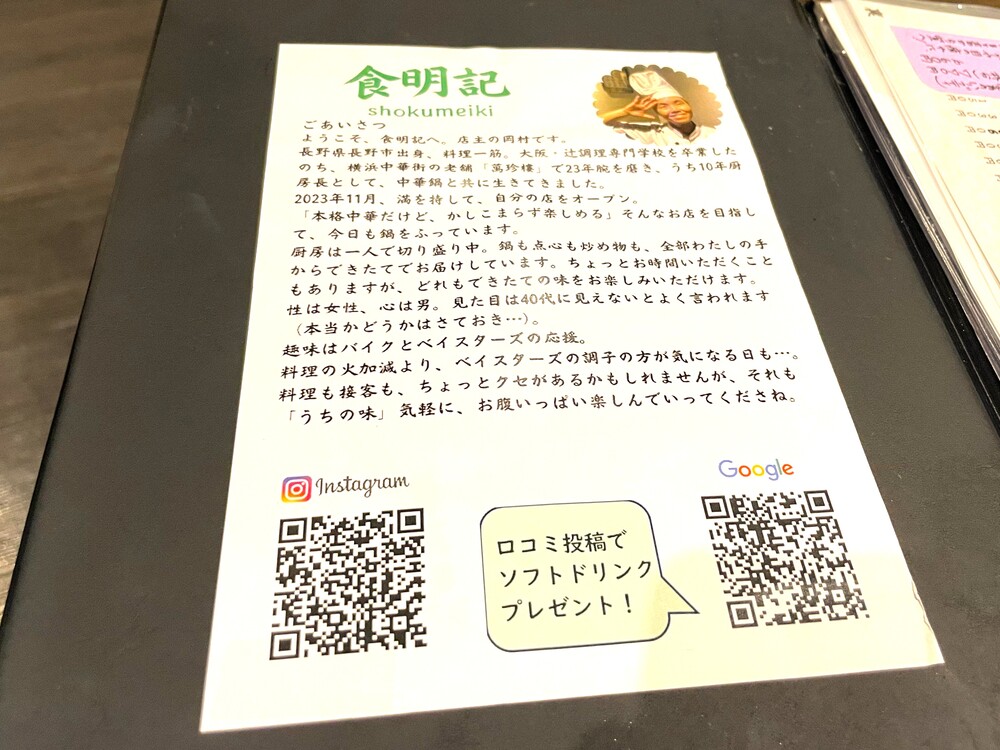 食明記
shokumeiki
ごあいさつ
ようこそ、食明記へ。店主の岡村です。
長野県長野市出身、料理一筋。大阪・辻調理専門学校を卒業した
のち、横浜中華街の老舗「萬珍樓」で23年腕を磨き、うち10年厨
房長として、中華鍋と共に生きてきました。
2023年11月、満を持して、自分の店をオープン。
「本格中華だけど、かしこまらず楽しめる」そんなお店を目指し
て、今日も鍋をふっています。
厨房は一人で切り盛り中。鍋も点心も炒め物も、全部わたしの手
からできたてでお届けしています。ちょっとお時間いただくこと
もありますが、どれもできたての味をお楽しみいただけます。
性は女性、心は男。見た目は40代に見えないとよく言われます
（本当かどうかはさておき…）。
趣味はバイクとベイスターズの応援。
料理の火加減より、ベイスターズの調子の方が気になる日も…。
料理も接客も、ちょっとクセがあるかもしれませんが、それも
「うちの味」気軽に、お腹いっぱい楽しんでいってくださね。
Instagram
Google
口コミ投稿で
ソフトドリンク
プレゼント！